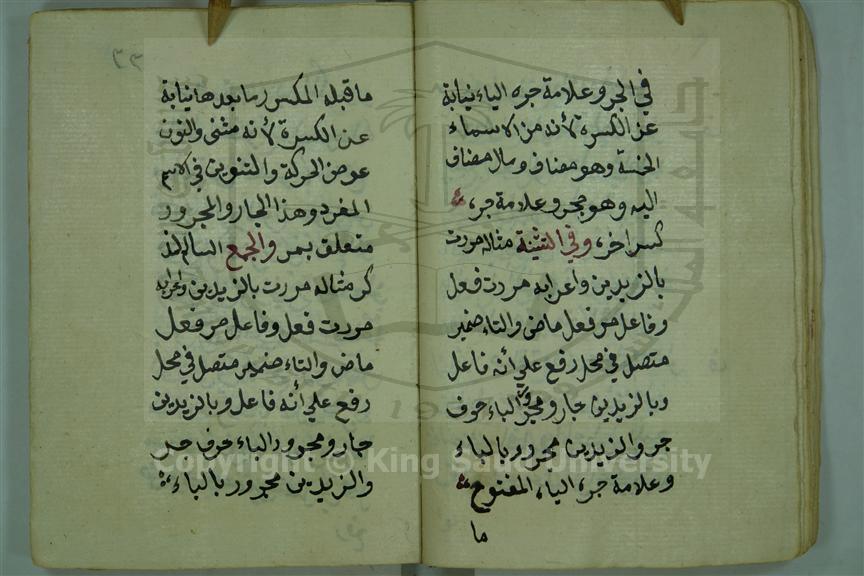 في الجر وعلامة جره الياء نيابة
عن الكسرة لأنه من الاسماء
الخمسة وهو مضاف ومال مضاف
اليه وهو مجر وعلامة جره
كسر اخره وفي التثنية مثاله مررت
بالزيدين واعرابه مررت فعل
وفاعل مر فعل ماض والتاء ضمير
متصل في محل رفع علي أنه فاعل
وبالزيدين جار ومجرور الباء حرف
جر والزيدين مجرور بالباء
وعلامة جره الياء المفتوح
ما
٣٣
ما قبلها المكسر ما بعدها نيابة
عن الكسرة لأنه مثنى والنون
عوض الحركة والتنوين في الاسم
المفرد وهذا الجار والمجرور
متعلق بمر والجمع السالم المذ
كر مثاله مررت بالزيدين واعرابه
مررت فعل وفاعل مر فعل
ماض والتاء ضمير متصل في محل
رفع علي أنه فاعل وبالزيدين
جار ومجرور الباء حرف جر
والزيدين مجرور بالباء
Copyright © King Saud University